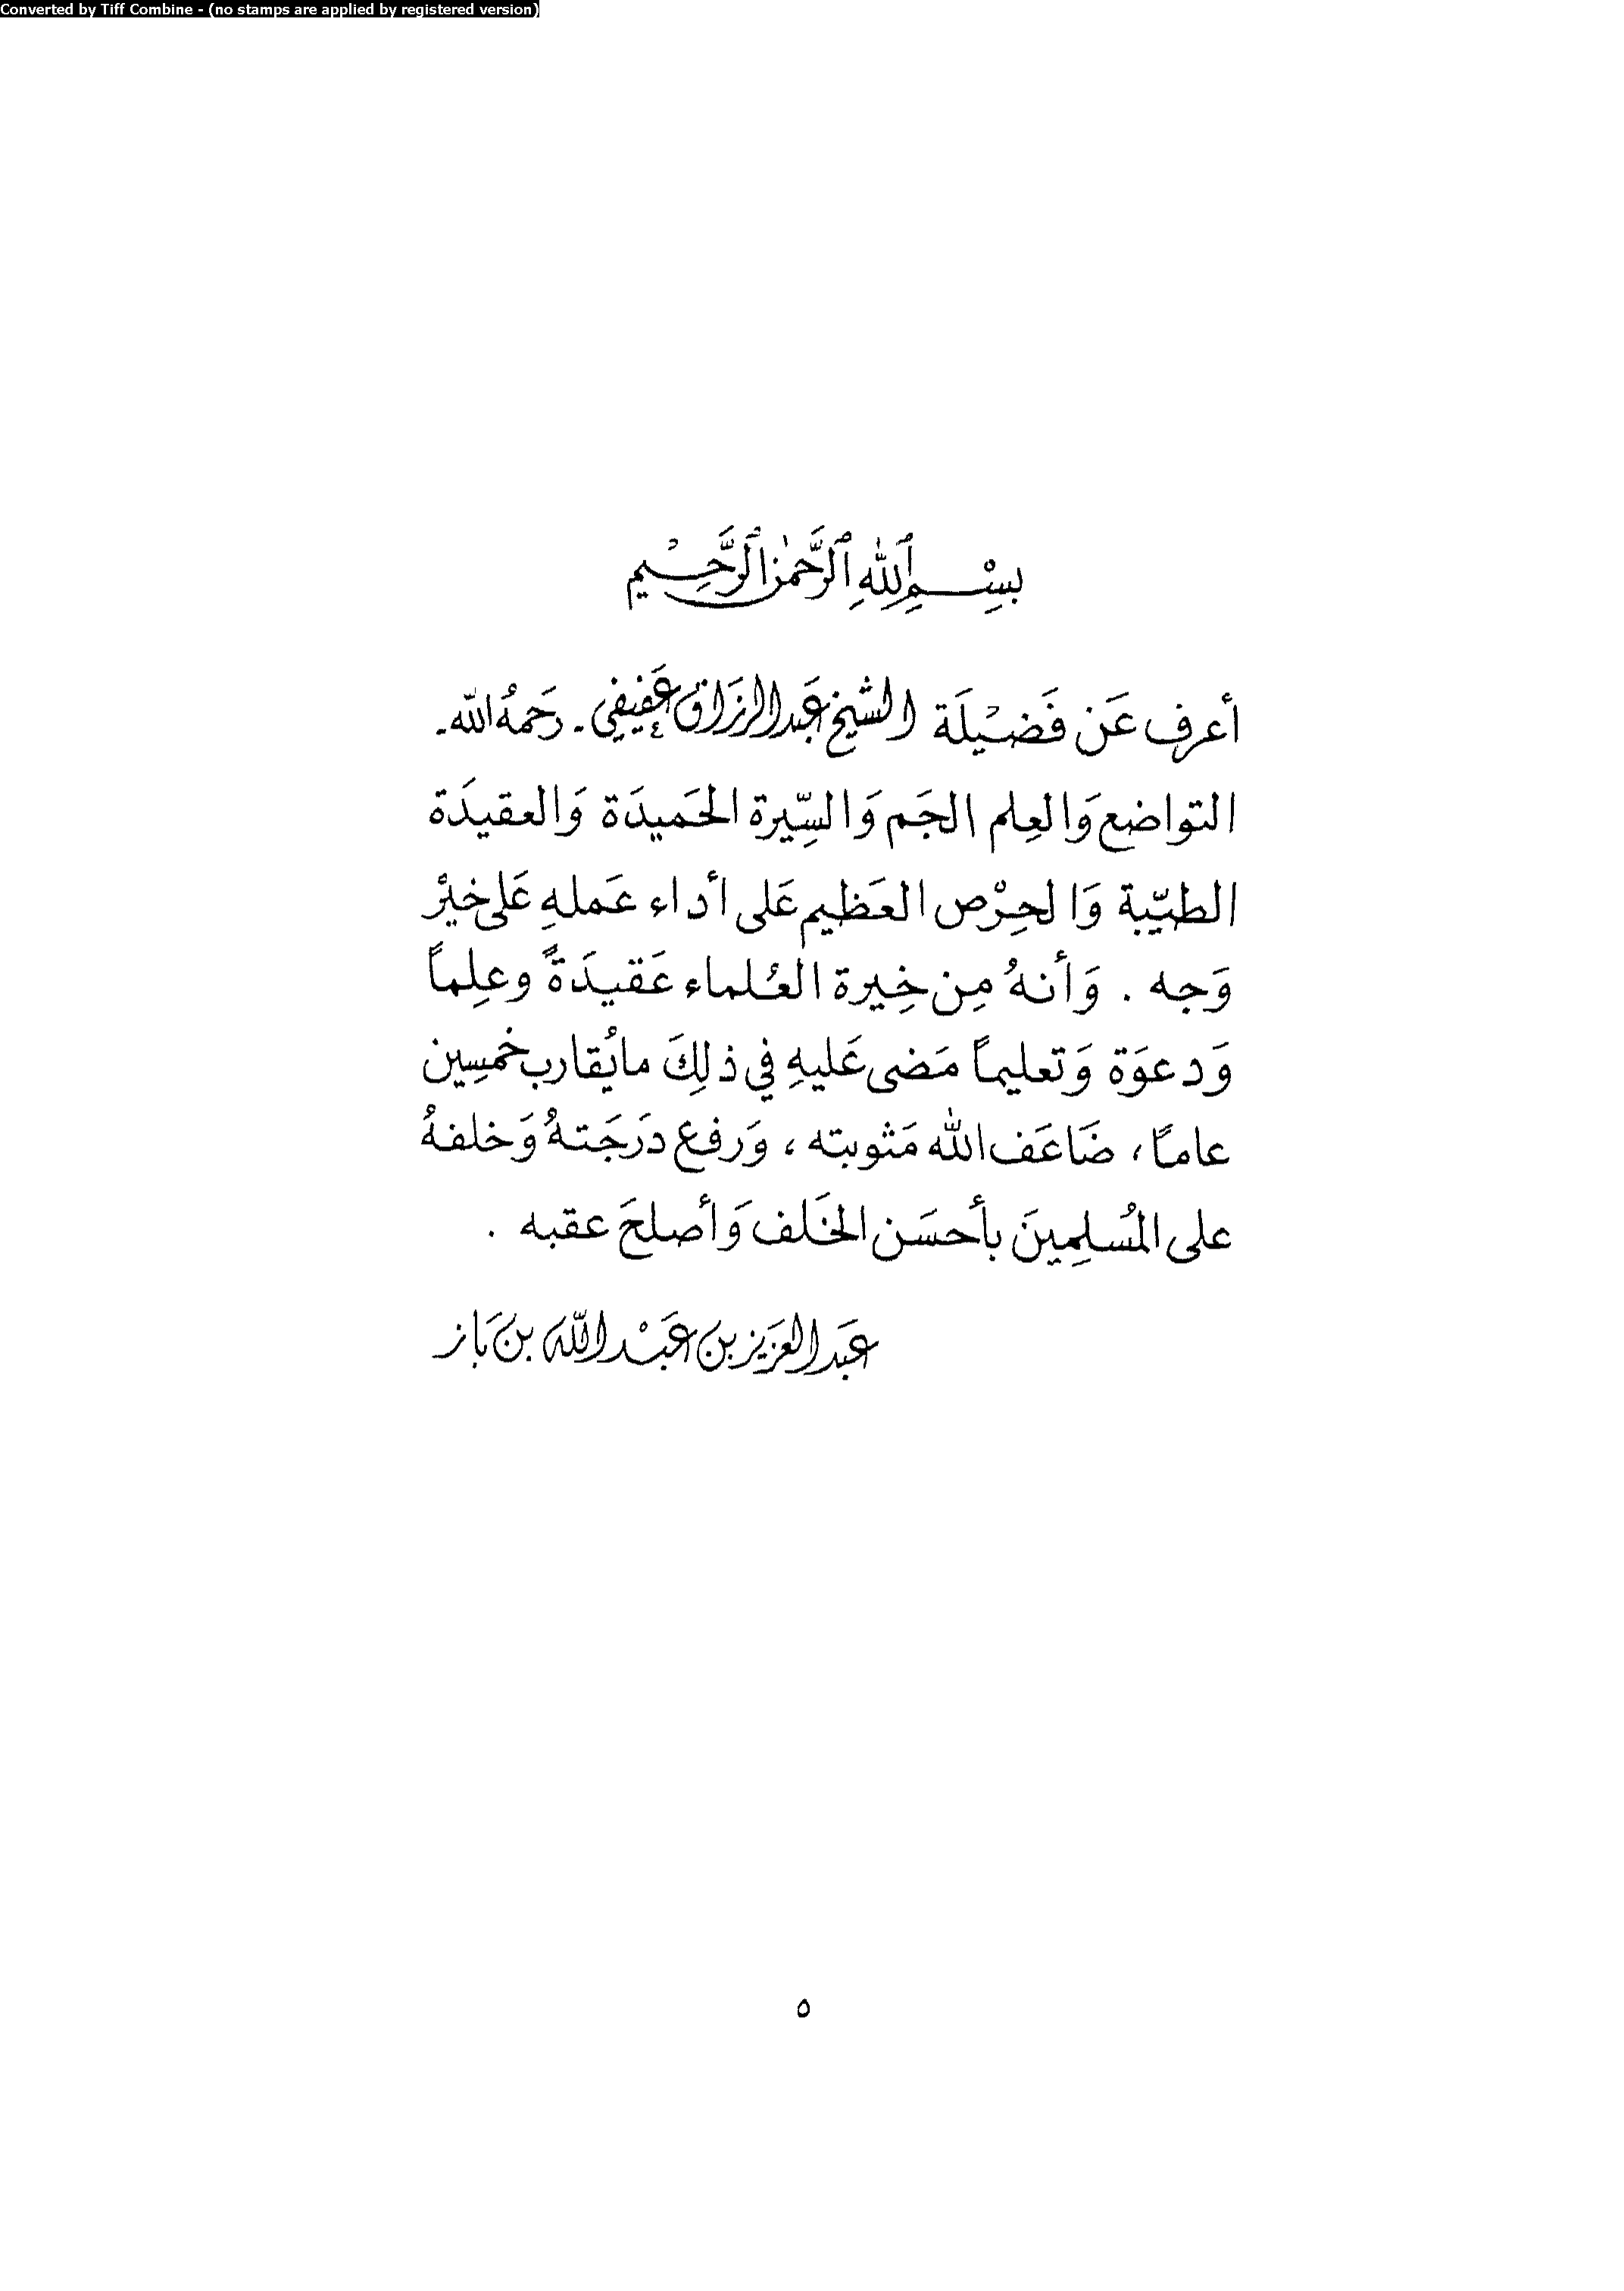 Converted by Tiff Combine - (no stamps are applied by registered version)
بِسْمِ ٱللَّهِ ٱلرَّحْمَٰنِ ٱلرَّحِيْمِ
أعرف عَن فَضيْلَة الشَّيخ عَبد الرزَاق عَفِيفِي ـ رَحمَهُ اللّٰه ـ
التواضع وَالعِلم الجَم وَالسِّيرة الحَميدَة وَالعقيدَة
الطيّبة وَالحِرْص العَظيم عَلى أداء عَملهِ عَلى خيْر
وَجه . وَأنهُ مِن خِيرة العُلماء عَقيدَةً وعلِماً
وَدعوَة وَتعليماً مَضى عَليهِ في ذلِكَ مايُقارب خمسِين
عاماً ، ضَاعَف اللّٰه مَثوبته ، وَرفع دَرَجَتهُ وَخلفهُ
على المُسلِمِينَ بأحسَن الخَلف وَأصلحَ عقبه .
عَبد العَزيز بن عَبْد اللّٰه بن بَاز
٥